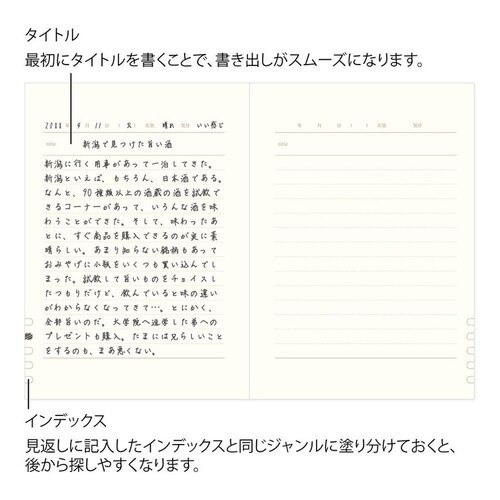 タイトル
最初にタイトルを書くことで、書き出しがスムーズになります。
2011 年 9 月 11 日 （ 火 ） 天気 晴れ 気分 いい感じ
年 月 日 （ ） 天気 気分
title 新潟で見つけた旨い酒
title
新潟に行く用事があって一泊してきた。
新潟といえば、もちろん、日本酒である。
なんと、90種類以上の酒蔵の酒を試飲で
きるコーナーがあって、いろんな酒を味
わうことができた。そして、味わったあ
とに、すぐ商品を購入できるのが実に素
晴らしい。あまり知らない銘柄もあって
おみやげに小瓶をいくつも買い込んでし
まった。試飲して旨いものをチョイスし
たつもりだけど、飲んでいると味の違い
がわからなくなってきて…。とにかく、
全部旨いのだ。大学院へ進学した弟への
プレゼントも購入。たまには兄らしいこと
をするのも、まあ悪くない。
インデックス
見返しに記入したインデックスと同じジャンルに塗り分けておくと、
後から探しやすくなります。